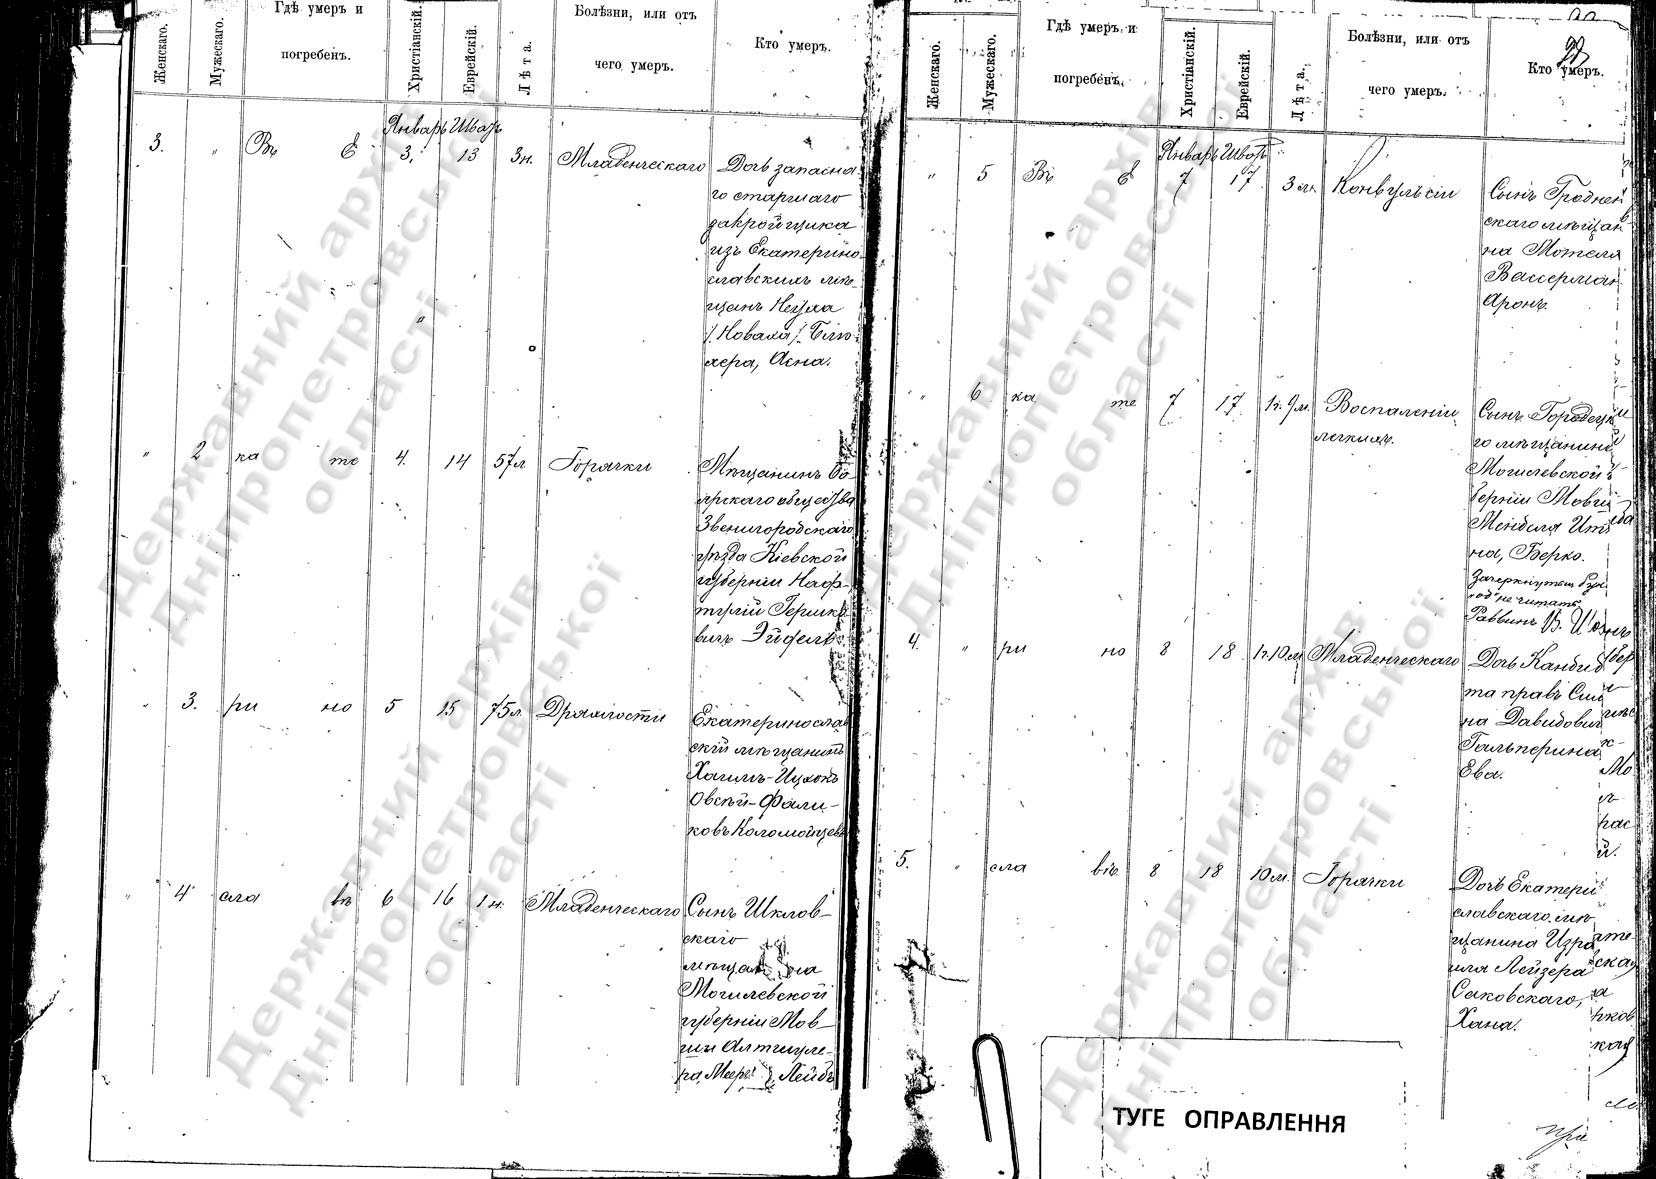 Женскаго.
Мужескаго.
Гдѣ умеръ и
погребенъ.
Христіанскій.
Еврейскій.
Лѣта.
Болѣзни, или отъ
чего умеръ.
Кто умеръ.
Январь Шватъ
3. " Въ Е 3. 13 3н. Младенческаго
Дочь запасна-
го старшаго
закройщика
изъ Екатерино-
славскихъ мѣ-
щанъ
/Новаха/ Блю-
хера, Асна.
" 2 ка те 4. 14 57л Горячки
Мѣщанинъ Бо-
ярскаго общества
Звенигородскаго
уѣзда Кіевской
губерніи Наф-
тулій Гершко-
вичъ Эйдель
" 3. ри но 5 15 75л. Дряхлости
Екатеринослав
скій мѣщанинъ
Хаимъ-Ицхокъ
Овсѣй-Фали-
ковъ Коломойцевъ
" 4 сла въ 6 16 1н. Младенческаго
Сынъ Шклов-
скаго
мѣщанина
Могилевской
губерніи Мов-
ши Алтшуле-
ра, Лейбъ
Женскаго.
Мужескаго.
Гдѣ умеръ и
погребенъ.
Христіанскій.
Еврейскій.
Лѣта.
Болѣзни, или отъ
чего умеръ.
Кто умеръ.
Январь Шватъ
" 5 Въ Е 7 17 3 Конвульсіи
Сынъ Гроднен
скаго мѣщан
на Мотеля
Вассерман
Аронъ.
" 6 ка те 7 17 1г. 9м. Воспаленіи
легкихъ.
Сынъ Городецк
го мѣщанина
Могилевской
берніи Мовши
Менделя
на, Берко.
Зачеркнутыя
"од" не читать.
Раввинъ
4. " ри но 8 18 1г. 10м Младенческаго
Дочь Кандид
та правъ
на Давидович
Гальперина
Ева.
5. " сла въ 8 18 10м. Горячки
Дочь Екатери
славскаго мѣ
щанина Изра
иля Лейзера
Саковскаго,
Хана.
ТУГЕ ОПРАВЛЕННЯ
Державний архів
Дніпропетровської
області
Державний архів
Дніпропетровської
області
Державний архів
Дніпропетровської
області
Державний архів
Дніпропетровської
області